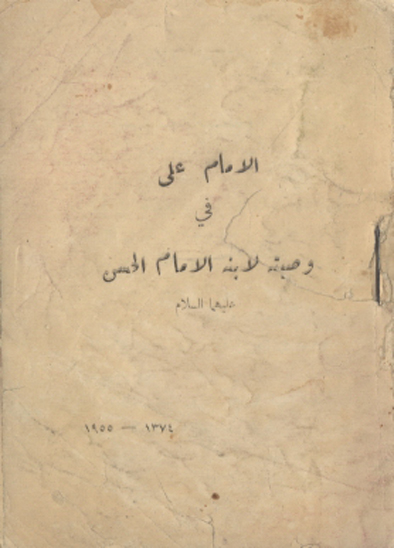 الامام على
في
وصيته لابنه الامام الحسن
عليهما السلام
١٣٧٤ — ١٩٥٥